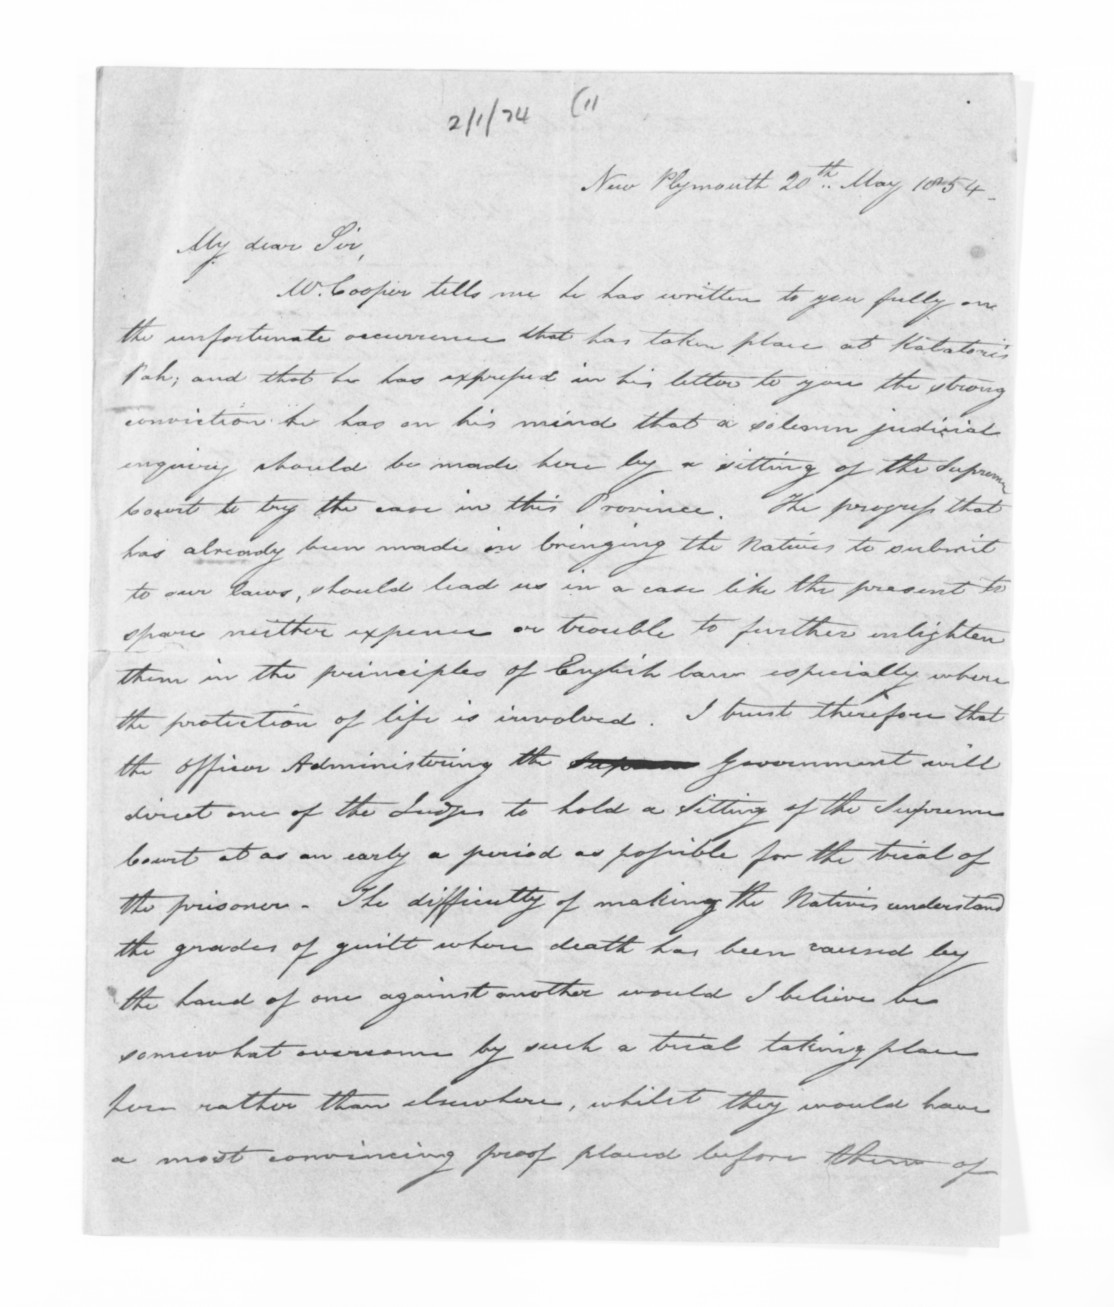 2/1/74 (11
New Plymouth 20th. May 1854.
My dear Sir,
Mr. Cooper tells me he has written to you fully on
the unfortunate occurrence that has taken place at Katatori's
Pah; and that he has expressed in his letter to you the strong
conviction he has on his mind that a solemn judicial
enquiry should be made here by a sitting of the Supreme
Court to try the case in this Province. The progress that
has already been made in bringing the Natives to submit
to our laws, should lead us in a case like the present to
spare neither expence or trouble to further enlighten
them in the principles of English law especially where
the protection of life is involved. I trust therefore that
the Officer Administering the Government will
direct one of the Judges to hold a Sitting of the Supreme
Court at as an early a period as possible for the trial of
the prisoner - The difficulty of making the Natives understand
the grades of guilt where death has been caused by
the hand of one against another would I believe be
somewhat overcome by such a trial taking place
here rather than elsewhere, whilst they would have
a most convincing proof placed before them of